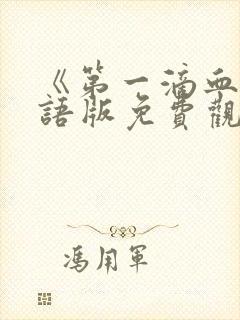 《第一滴血
語版免費觀
馮用軍